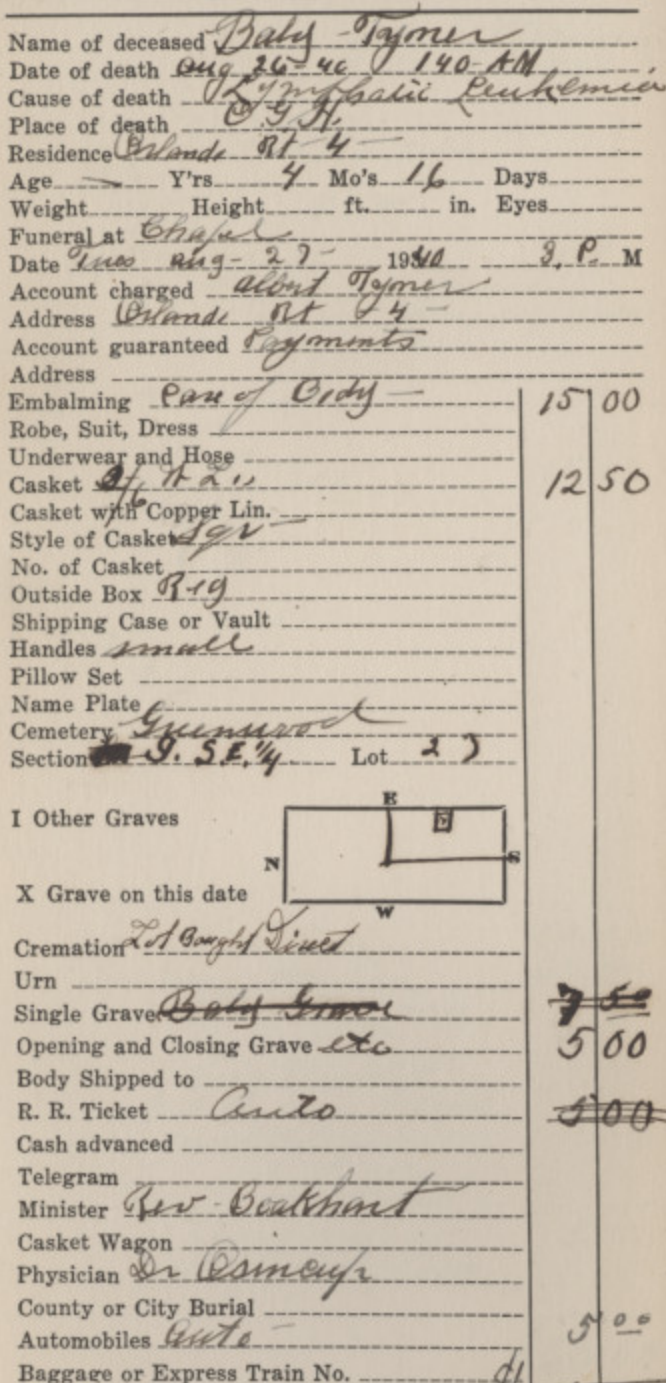 Name of deceased Baby Tymer
Date of death Aug 26-40 140-AM
Cause of death Lymphatic Leukemia
Place of death O G H.
Residence Orlando Rt 4
Age Y'rs 4 Mo's 16 Days
Weight Height ft. in. Eyes
Funeral at Chapel
Date Tues Aug-27- 1940 3. P. M
Account charged Albert Tymer
Address Orlando Rt 4
Account guaranteed Payments
Address
Embalming Care of Body 15 00
Robe, Suit, Dress
Underwear and Hose
Casket 12 50
Casket with Copper Lin.
Style of Casket Sqr
No. of Casket
Outside Box Reg
Shipping Case or Vault
Handles small
Pillow Set
Name Plate
Cemetery Greenwood
Section 9. S.E. 1/4 Lot 27
I Other Graves
E
N S
W
X Grave on this date
Cremation Lot Bought Direct
Urn
Single Grave Baby Grave 7 50
Opening and Closing Grave etc 5 00
Body Shipped to
R. R. Ticket Auto 5 00
Cash advanced
Telegram
Minister Rev
Casket Wagon
Physician Dr
County or City Burial
Automobiles Auto 5 00
Baggage or Express Train No.